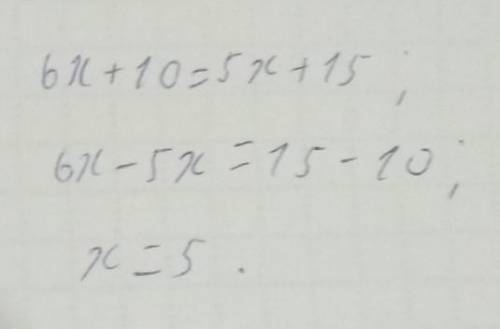 6x+10=5x+15;
6x-5x=15-10;
x=5.